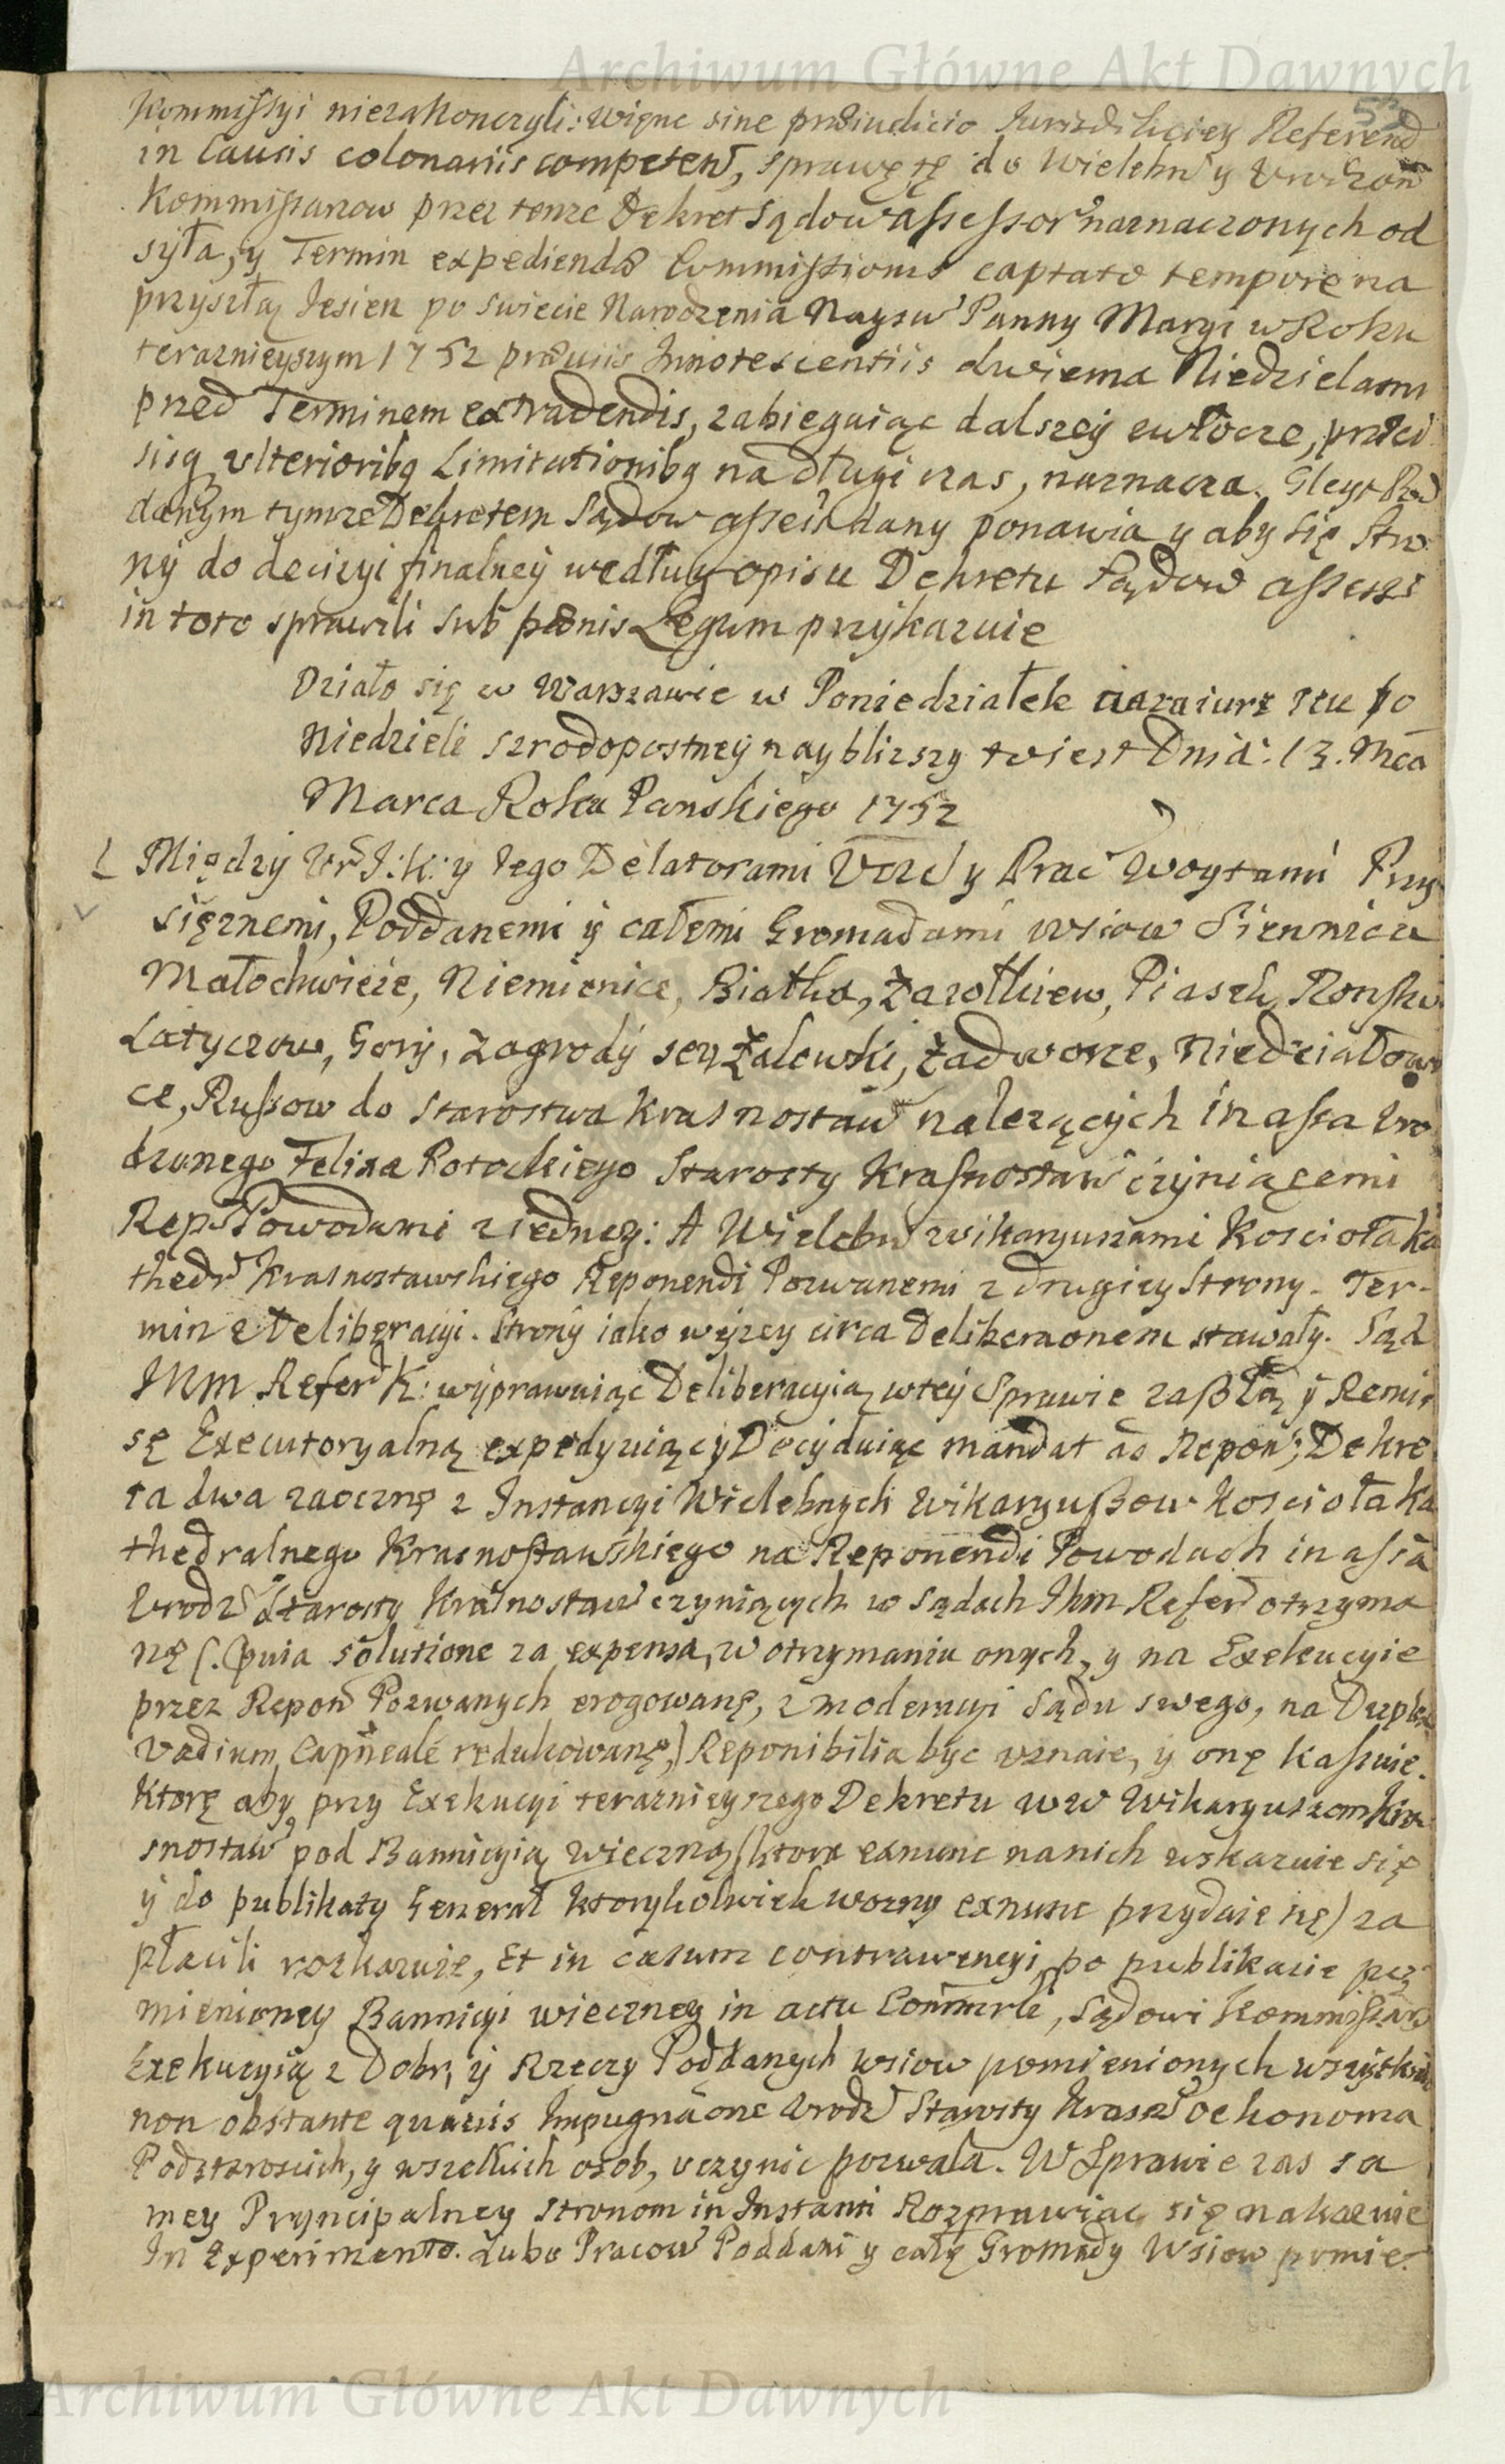 Archiwum Główne Akt Dawnych
Kommissyi niezakonczyli: więnc sine præiudicio Jurisdikcięy Referend
in Causis colonariis competen, sprawę tę do Wielebn y Vrodzon
Kommissarzow przez tenze Dekret Sądow assessor naznaczonych od
syła, y Termin expediendæ Commissionis captato tempore na
przyszłą Jesien po swiecie Narodzenia Nayśw Panny Maryi w Roku
teraznieyszym 1752 præviis Innotescentiis dwiema Niedzielami
przed Terminem extradendis, zabiegaiąc dalszey ewłocze,
ulterioribq Limitationibq na długi czas, naznacza. Gleyt
danym tymze Dekretem Sądow assess dany ponawia y aby się Stro
ny do decizyi finalney według opisu Dekretu Sądow assess
in toto sprawili sub pœnis Legum przykazuie
Działo się w Warszawie w Poniedziałek nazaiurz zeu po
Niedzieli szrodopostney nayblizszy to iest Dnia: 13. Mca
Marca Roku Panskiego 1752
Między Ur J:K: y Jego Delatorami Vczc y Prac Woytami Przy
sięznemi, Poddanemi y całemi Gromadami wsiow Siennicu
Małochwieie, Niemienice, Białka, Zazołkiew, Piaseki, Ronsko
Latyczow, Gory, Zagrody seu Zalewski, Zadworze, Niedziałow
ce, Russow do Starostwa Krasnostaw nalezących in assa Uro
dzonego Felixa Potockiego Starosty Krasnostaw czyniącemi
Rep Powodami z iedney: A Wielebn Wikaryuszami Kosciołaka
thedr Krasnostawskiego Reponendi Pozwanemi z drugiey Strony. Ter-
min z Deliberacyi. Strony iako wyzey circa Deliberaonem stawały. Sąd
JKM Refer K: wyprawuiąc Deliberacyią w tey Sprawie zaszłą y Remi,
sę Executoryalną expedyuiąc y Decyduiąc mandat ao Repon; Dekre
ta dwa zaoczne z Instancyi Wielebnych Wikaryuszow Kosciołaka
thedralnego Krasnostawskiego na Reponendi Powodach in assa
Vrodz Starosty Krasnostaw czyniących w Sądach JKM Refer otrzyma
nę (. pvia solutione za expensa, w otrzymaniu onych, y na Exekucyie
przez Repon Pozwanych erogowanę, z moderacyi Sądu swego, na Duplex
Vadium Capneale redukowanę,) Reponibilia byc vznaie, y onę kassuie.
Ktorę aby przy Exekucyi teraznieyszego Dekretu WW Wikaryuszom Kra
snostaw pod Bannicyią wieczną (ktora exnunc na nich wskazuie się
y do publikaty Generał ktorykolwiek wozny exnunc przydaie się) za
płacili roskazuie, Et in casum contrawencyi po publikacie prz
mienioney Bannicyi wieczney in actu Commrli, Sądowi Kommissar
Exekucyią z Dobr, y Rzeczy Poddanych wsiow pomienionych wszystkich
non obstante quavis Impugnaone Vrodz Starosty Krasn Oekonoma
Podstaroscich, y wszelkich osob, vczynic pozwala. W Sprawie zas sa
mey Pryncipalney Stronom in Instanti Rozprawiac się nakazuie
In Experimento. Lubo Pracow Poddani y całę Gromady Wsiow pomie.
Archiwum Główne Akt Dawnych